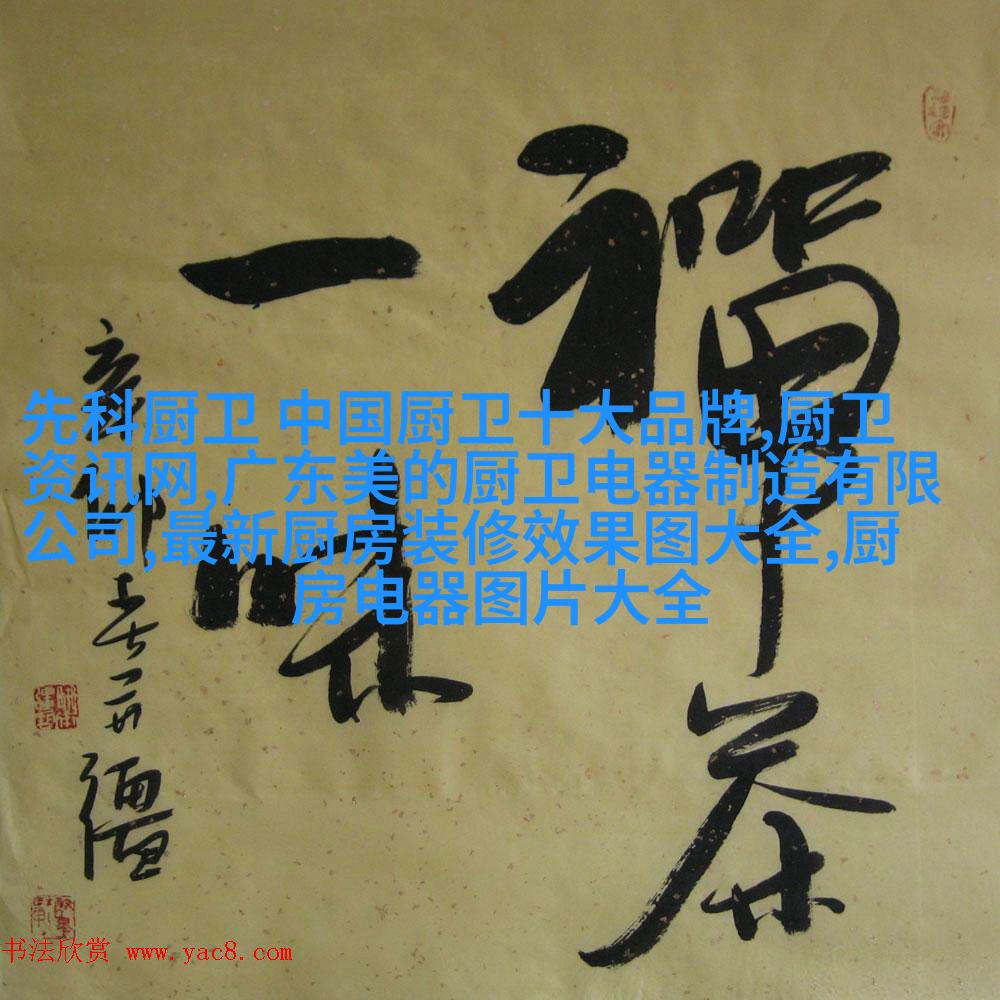 禅茶
一味
先科厨卫 中国厨卫十大品牌,厨卫
资讯网,广东美的厨卫电器制造有限
公司,最新厨房装修效果图大全,厨
房电器图片大全
书法欣赏 www.yac8.com